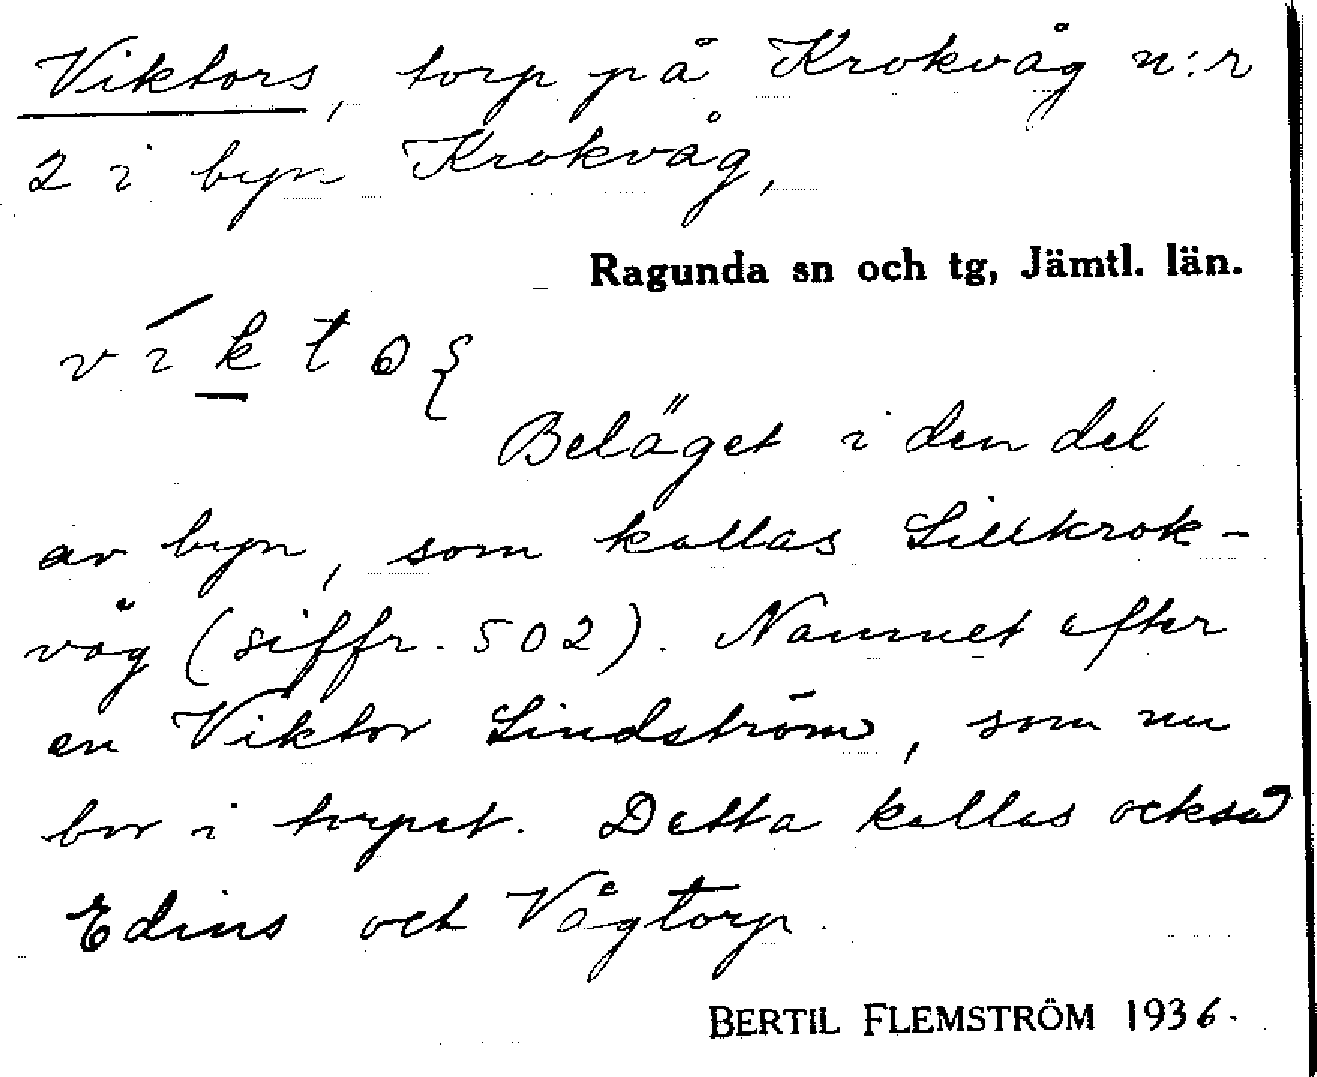 Viktors, torp på Krokvåg n:r
2 i byn Krokvåg,
Ragunda sn och tg, Jämtl. län.
Beläget i den del
av byn, som kallas Lillkrok-
våg (siffr. 502). Namnet efter
en Viktor Lindström, som nu
bor i torpet. Detta kallas också
Edins och Vågtorp.
BERTIL FLEMSTRÖM 1936.